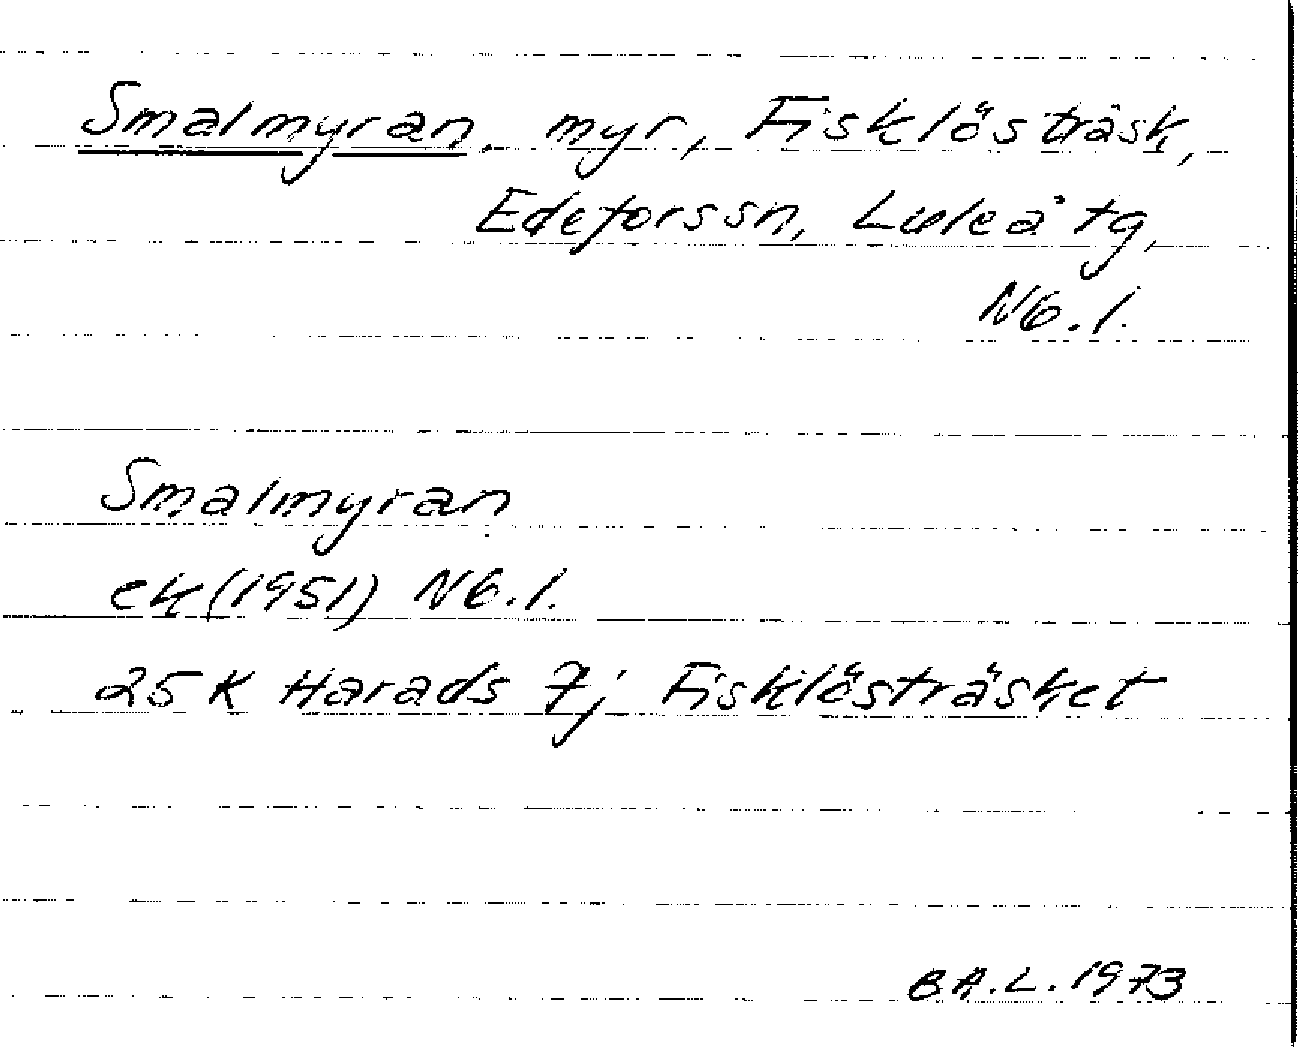 Smalmyran, myr, Fisklösträsk,
Edeforssn, Luleå tg,
Nb.l.
Smalmyran
ek (1951) Nb.l.
25 K Harads 7j Fisklösträsket
B A.L. 1973